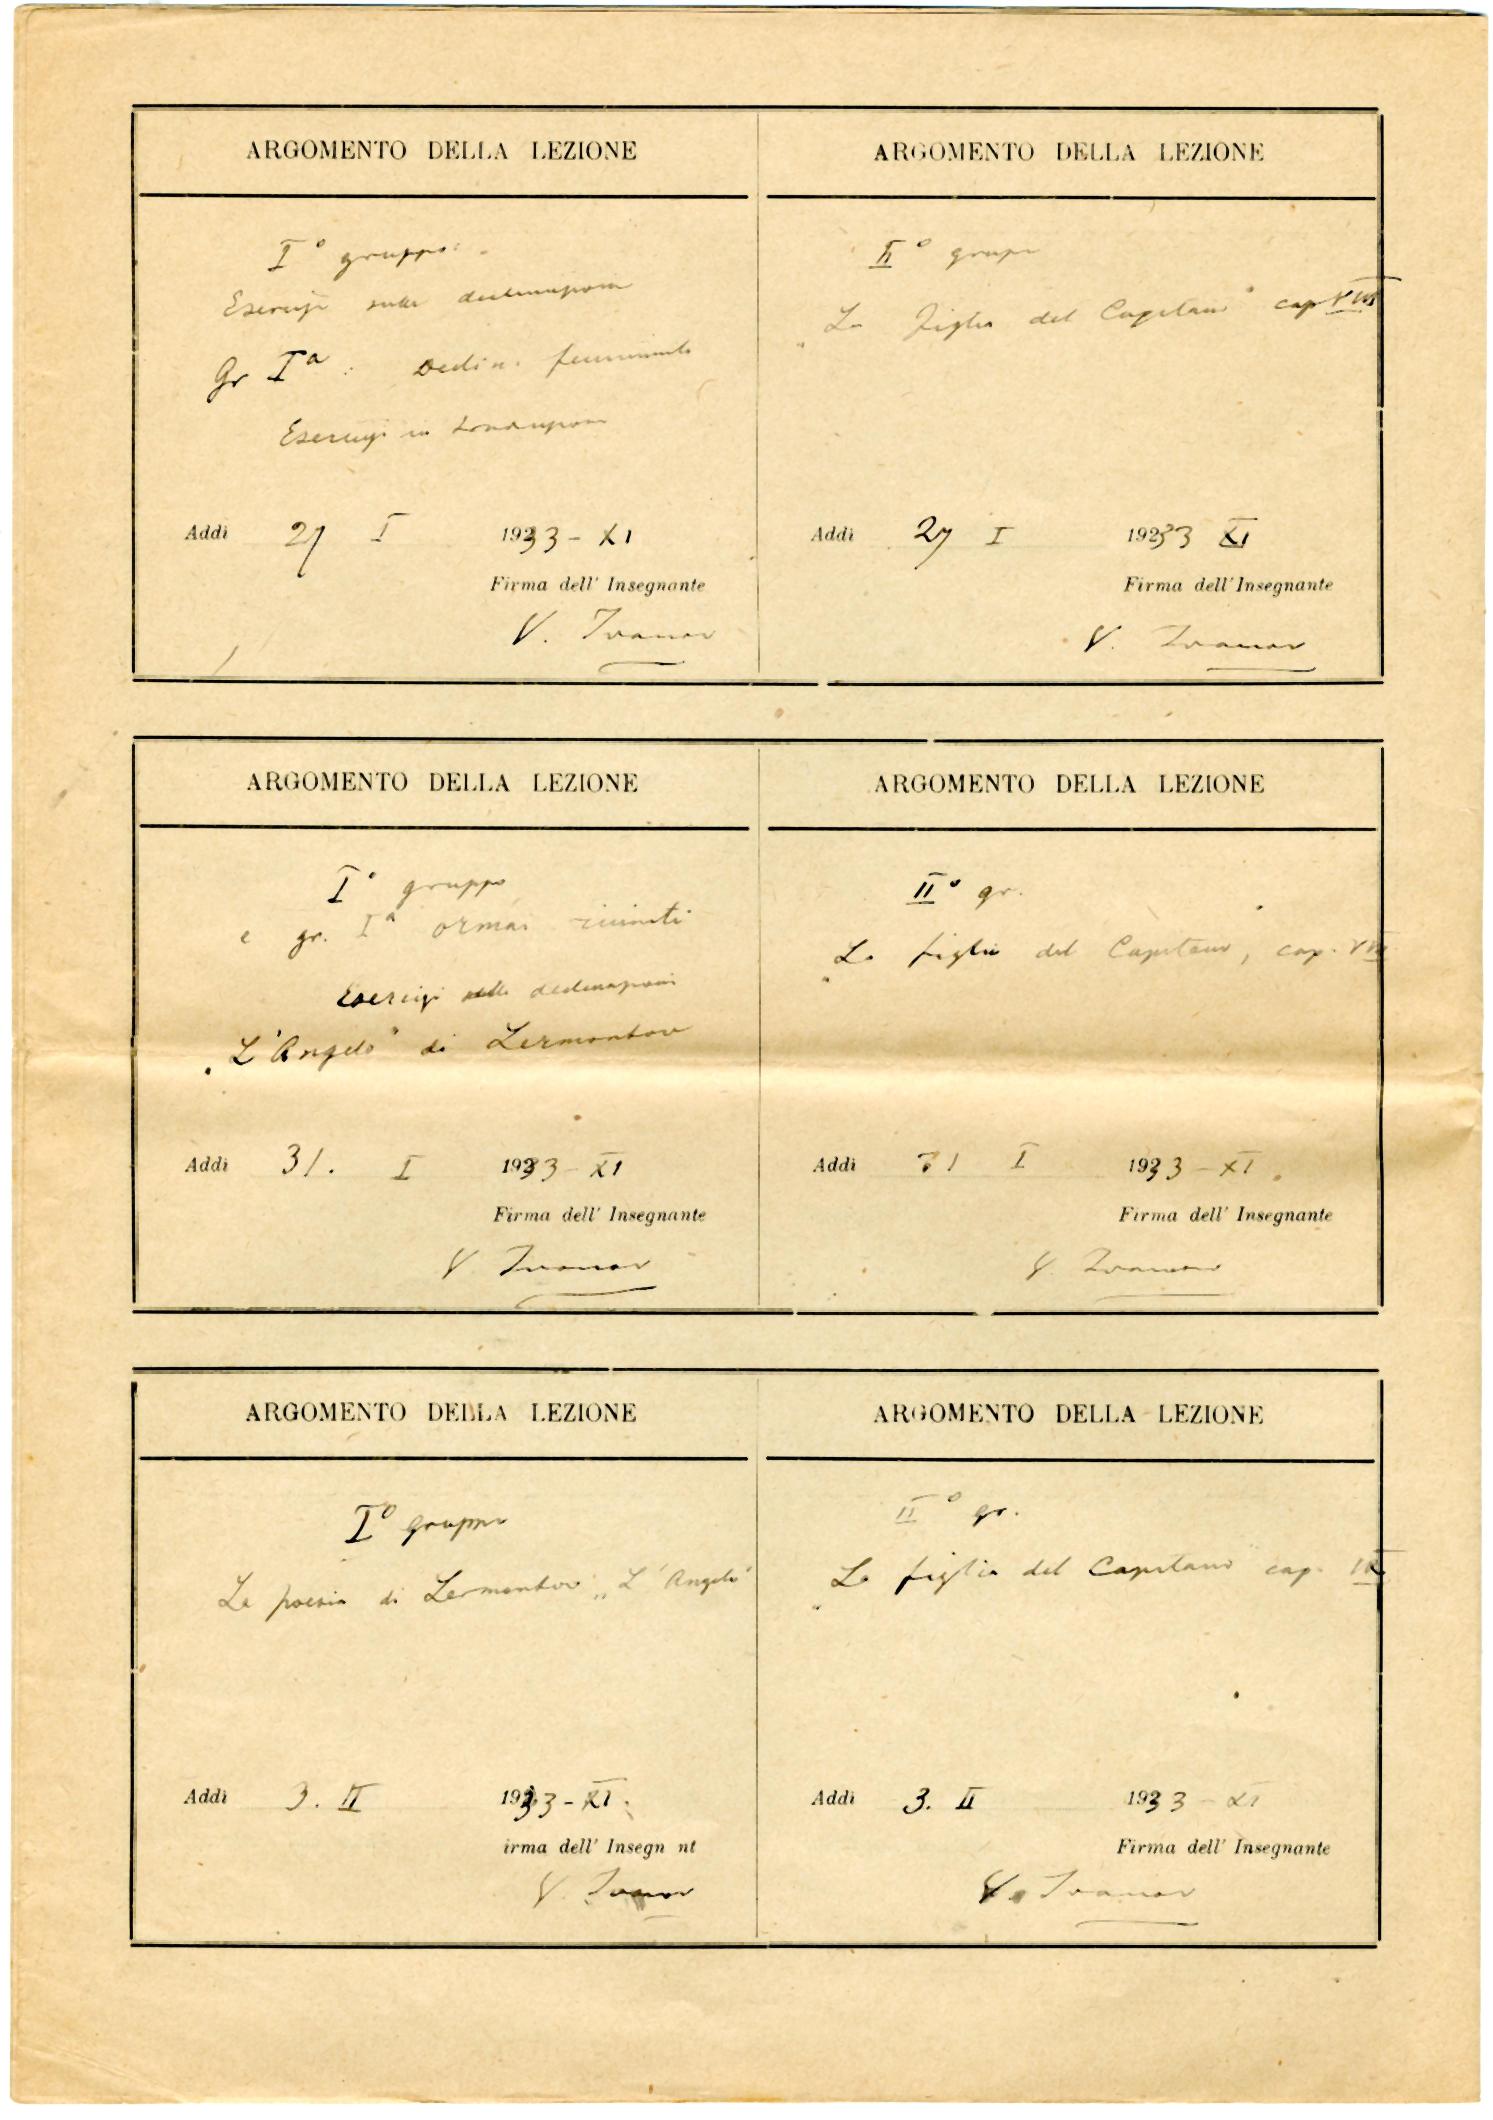 ARGOMENTO DELLA LEZIONE
I° gruppo:
Esercizi sulle declinazioni
Gr I a : Declin. femminile
Esercizi in
Addì 27 I 1933 - XI
Firma dell' Insegnante
V. Ivanov
ARGOMENTO DELLA LEZIONE
II° grupp
„La figlia del Capitano" cap VIII
Addì 27 I 1933 XI
Firma dell' Insegnante
V. Ivanov
ARGOMENTO DELLA LEZIONE
I° gruppo
e gr. I a ormai riuniti
Esercizi sulle declinazioni
„L'Angelo" di Lermontov
Addì 31. I 1933 - XI
Firma dell' Insegnante
V. Ivanov
ARGOMENTO DELLA LEZIONE
II° gr.
„La figlia del Capitano, cap.
Addì 31 I 1933 - XI
Firma dell' Insegnante
V. Ivanov
ARGOMENTO DELLA LEZIONE
I° gruppo
La poesia di Lermontov „L'Angelo"
Addì 3. II 1933 - XI.
irma dell' Insegn nt
V. Ivanov
ARGOMENTO DELLA LEZIONE
II° gr.
„La figlia del Capitano" cap. IX
Addì 3. II 1933 - XI
Firma dell' Insegnante
V. Ivanov